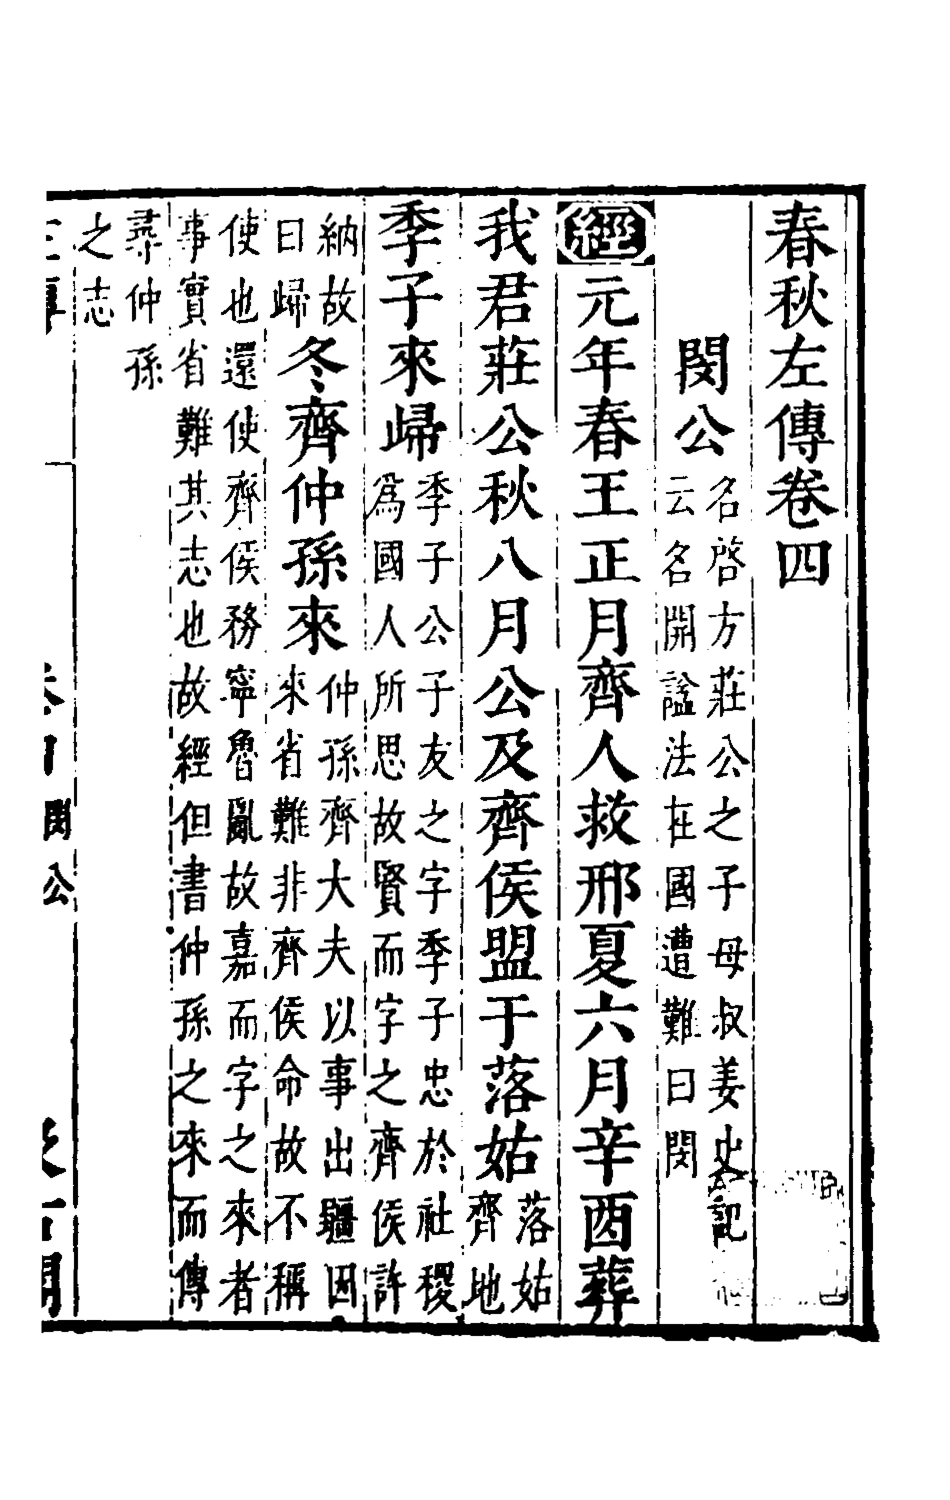 春秋左傳卷四
閔公
名啓方莊公之子母叔姜史記
云名開諡法在國遭難曰閔
經元年春王正月齊人救邢夏六月辛酉葬
我君莊公秋八月公及齊侯盟于落姑
落姑
齊地
季子來歸
季子公子友之字季子忠於社稷
爲國人所思故賢而字之齊侯許
納故
曰歸
冬齊仲孫來
仲孫齊大夫以事出疆因
來省難非齊侯命故不稱
使也還使齊侯務寧魯亂故嘉而字之來者
事實省難其志也故經但書仲孫之來而傳
尋仲孫
之志
閔公